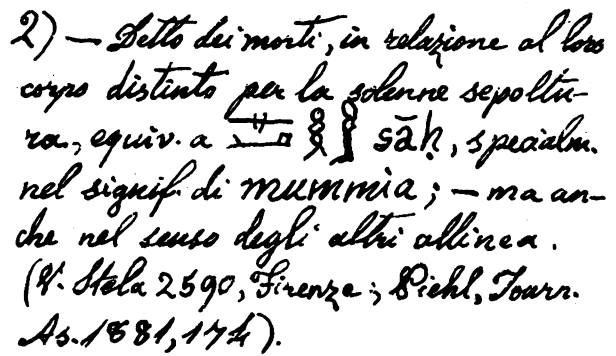 2) — Detto dei morti, in relazione al loro
corpo distinto per la solenne sepoltu-
ra., equiv. a sāḥ, specialm.
nel signif. di mummia; — ma an-
che nel senso degli altri allinea.
(V. Stela 2590, Firenze; Piehl, Journ.
As. 1881, 174).